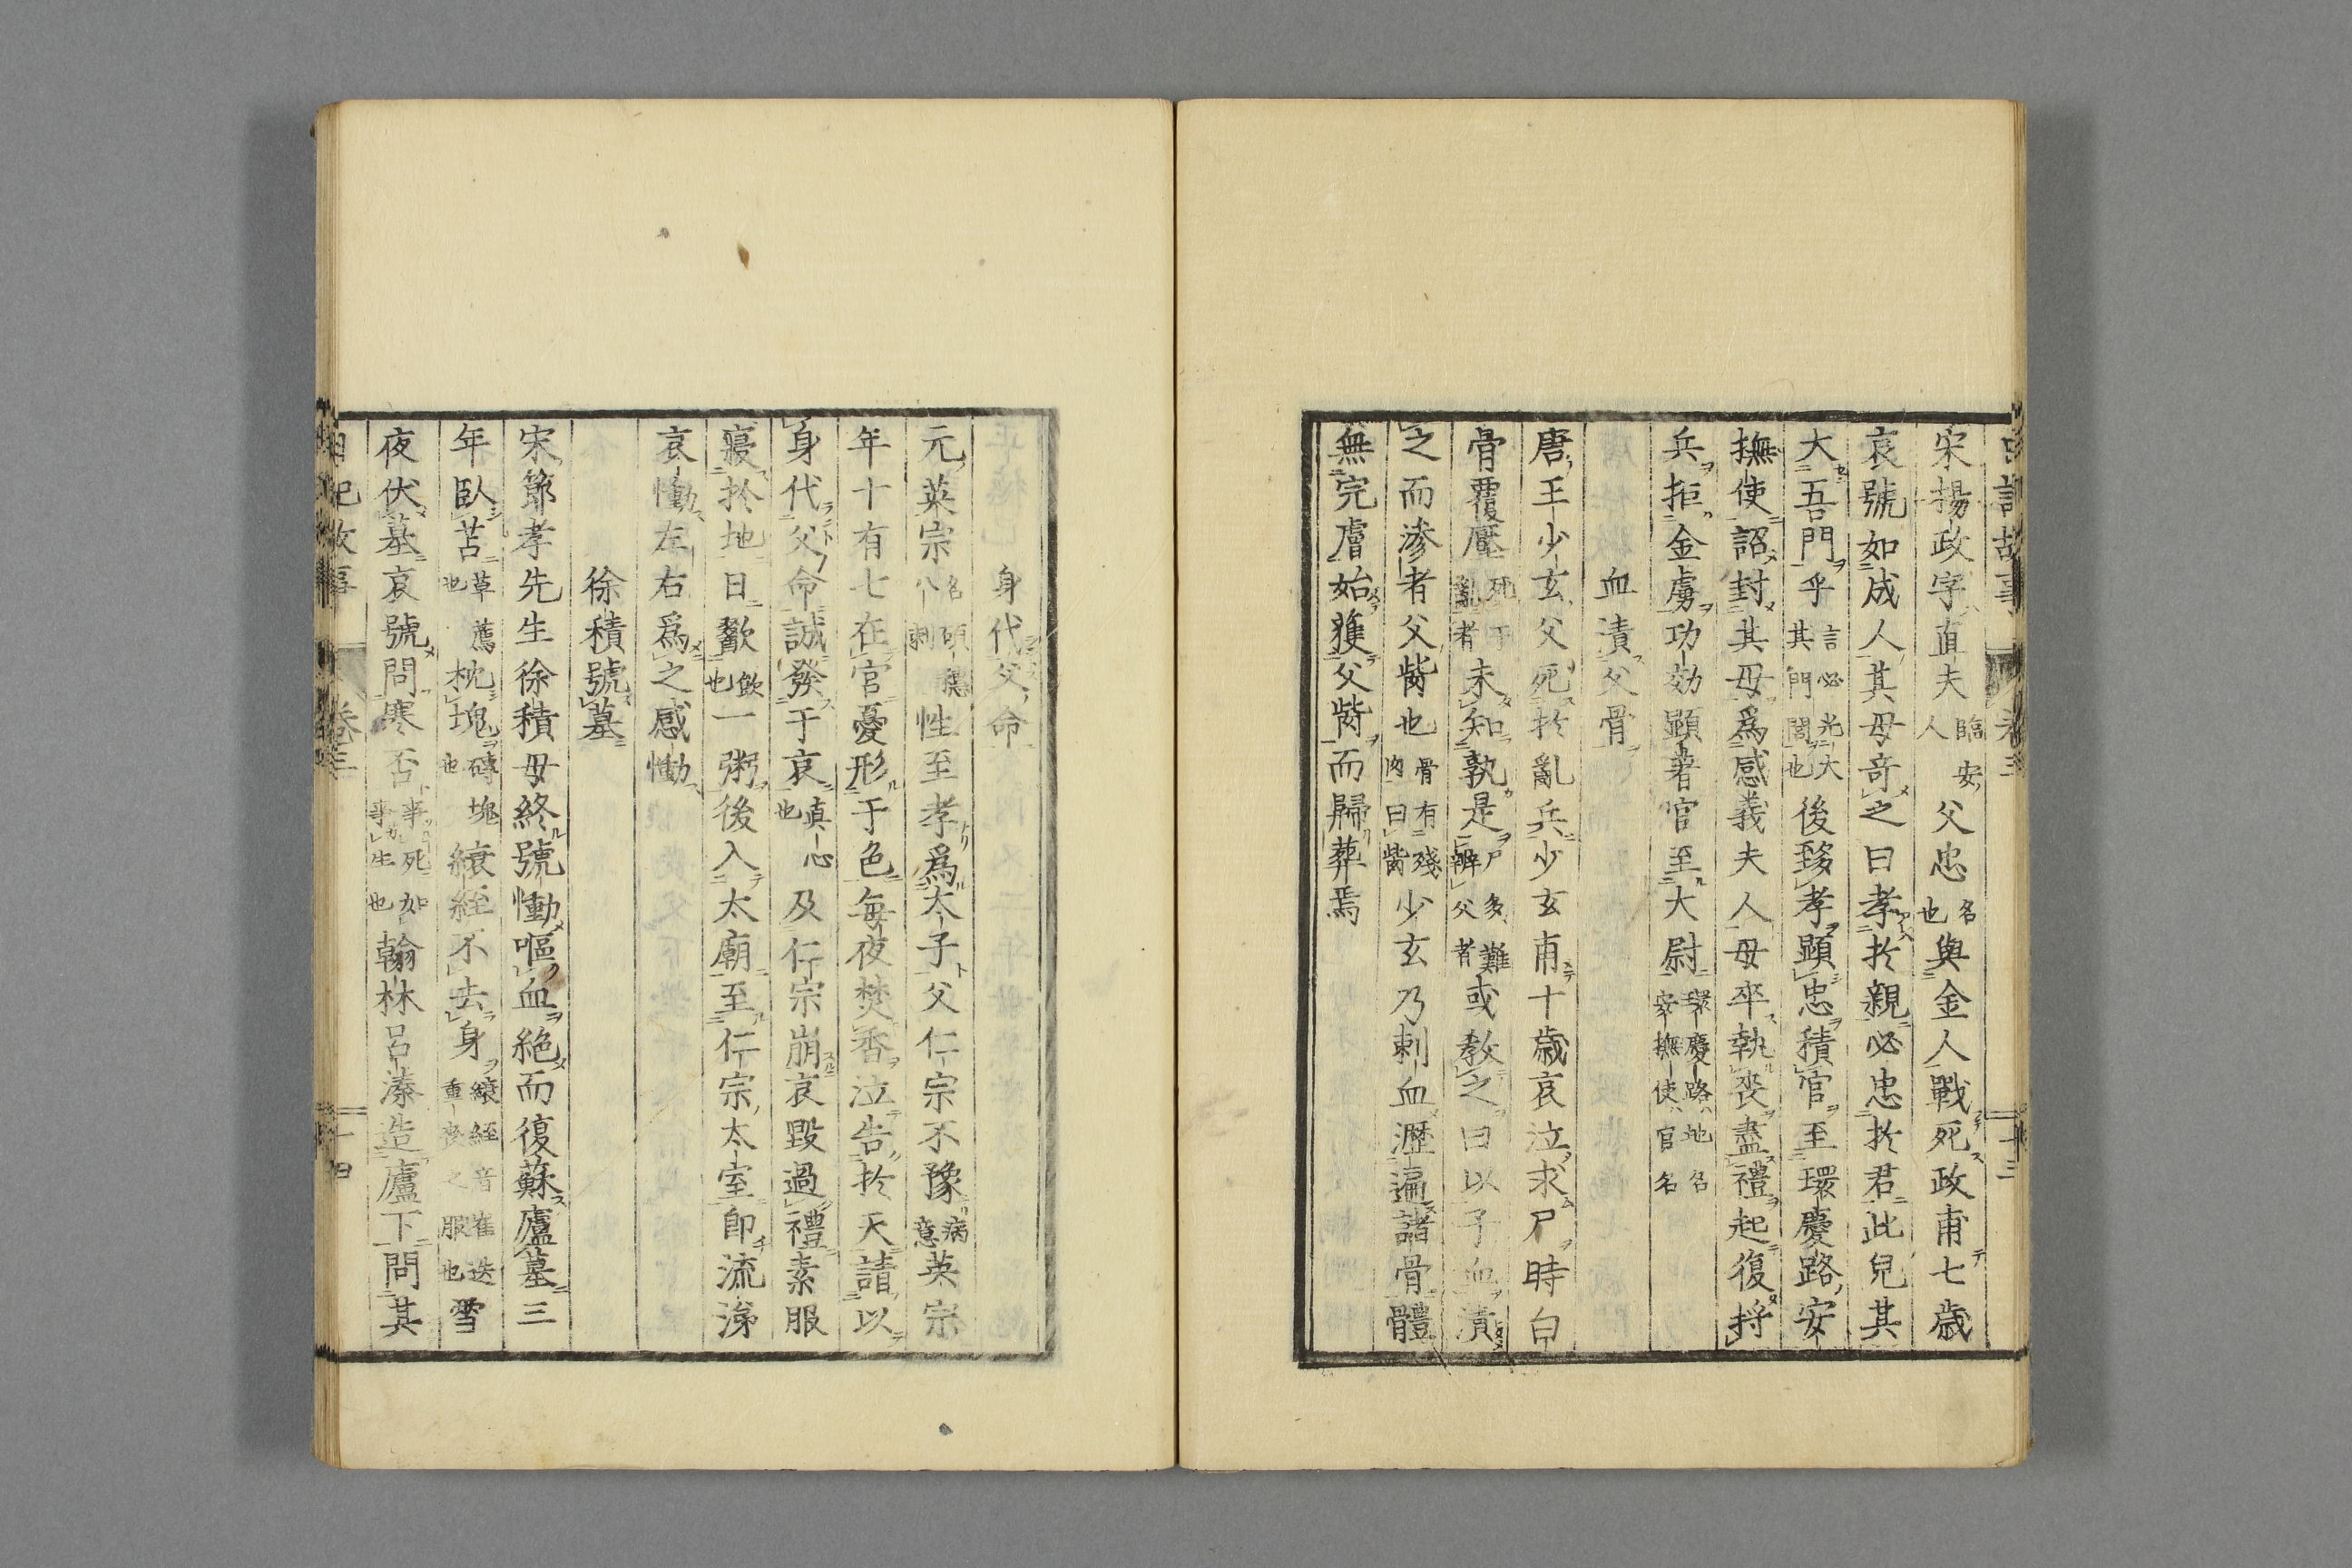 宋揚政字直夫臨安人父忠名也與金人戰死政甫七歲
哀號如成人其母奇之曰孝於親必忠於君此兒其
大吾門乎言必光大其門閭也後移孝顯忠積官至環慶路安
撫使詔封其母爲感義夫人母卒執喪盡禮起復捋
兵拒金虜功効顯著官至大尉環慶路地名安撫使官名
血漬父骨
唐王少玄父死於亂兵少玄甫十歲哀泣求尸時白
骨覆壓死于亂者未知孰是尸多難辨父者或教之曰以子血漬
之而滲者父胔也骨有殘肉曰胔少玄乃刺血瀝遍諸骨體
無完膚始獲父胔而歸葬焉
身代父命
元英宗名碩德八剌性至孝爲太子父仁宗不豫病意英宗
年十有七在官憂形于色每夜焚香泣告於天請以
身代父命誠發于哀真心也及仁宗崩哀毀過禮素服
寢於地日歠飲也一粥後入太廟至仁宗太室即流涕
哀慟左右爲之感慟
徐積號墓
宋節孝先生徐積母終號慟嘔血絶而復蘇廬墓三
年臥苫草薦也枕塊磚塊也縗絰不去身縗絰音崔迭重喪之服也雪
夜伏墓哀號問寒否事死如事生也翰林呂溱造廬下問其